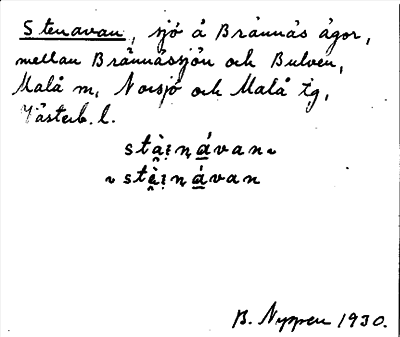 Stenavan, sjö å Brännäs ägor,
mellan Brännässjön och Bulven,
Malå m, Norsjö och Malå tg,
Västerb. l.
stà̯i̯ṇá̱van ~
~ stè̯i̯ṇá̱van
B. Nyppen 1930.